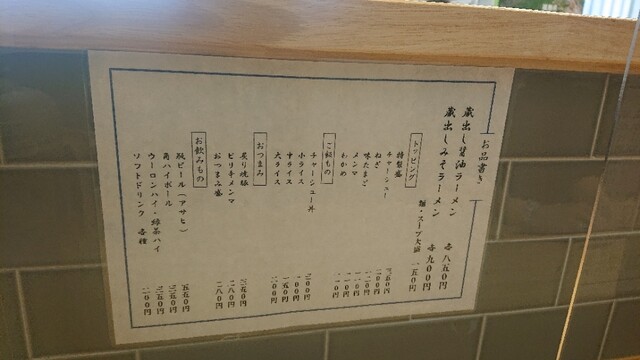 お品書き
蔵出し醤油ラーメン 各八五〇円
蔵出しみそラーメン 各九〇〇円
麺・スープ大盛 一五〇円
トッピング
特製盛
チャーシュー
ねぎ
味たまご
メンマ
わかめ
ご飯もの
チャーシュー丼
小ライス
中ライス 一五〇円
大ライス 二〇〇円
おつまみ
炙り焼豚
ピリ辛メンマ 二八〇円
おつまみ盛
お飲みもの
瓶ビール（アサヒ） 五五〇円
角ハイボール 三五〇円
ウーロンハイ・緑茶ハイ 三五〇円
ソフトドリンク 各種 二〇〇円